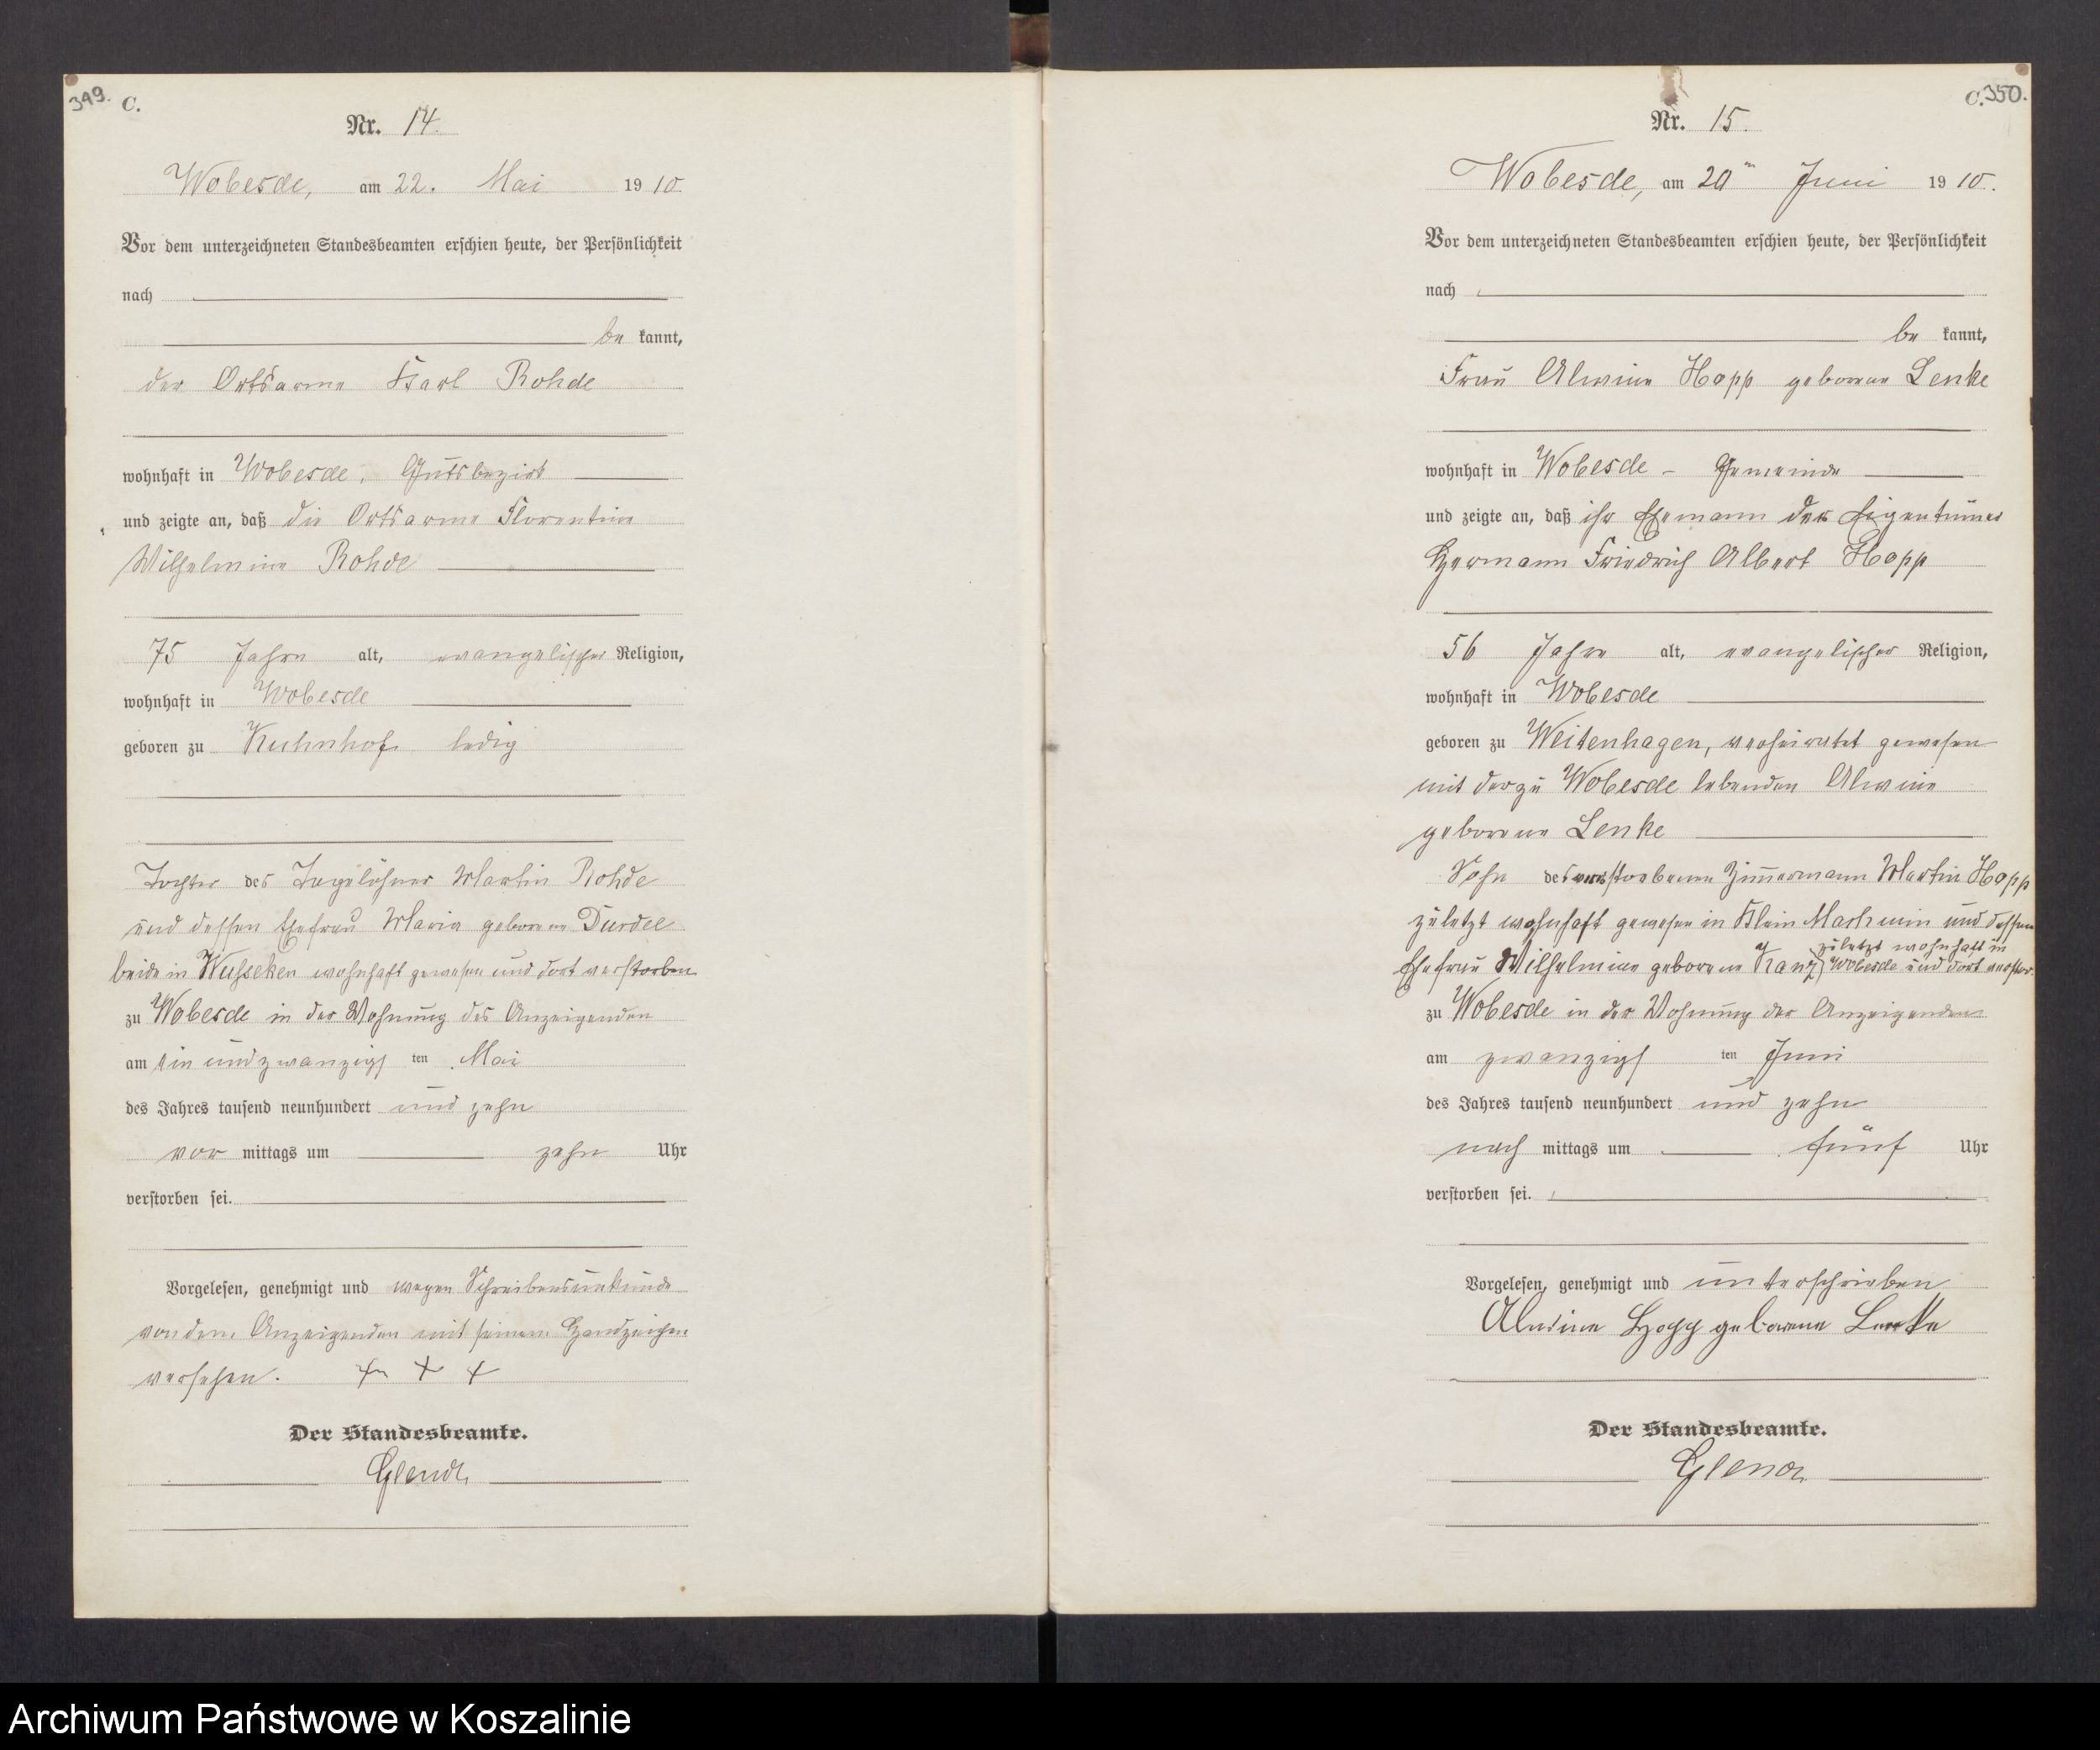 349.
C.
Nr. 14.
Wobesde, am 22. Mai 1910.
Vor dem unterzeichneten Standesbeamten erschien heute, der Persönlichkeit
nach
be kannt,
der Ortsarme Karl Rohde
wohnhaft in Wobesde, Gutsbezirk
und zeigte an, daß die Ortsarme Florentine
Wilhelmine Rohde
75 Jahre alt, evangelischer Religion,
wohnhaft in Wobesde
geboren zu Kuhnhof ledig
Tochter des Tagelöhner Martin Rohde
und dessen Ehefrau Maria geborene Durdel
beide in Wusseken wohnhaft gewesen und dort verstorben
zu Wobesde in der Wohnung des Anzeigenden
am ein und zwanzigs ten Mai
des Jahres tausend neunhundert und zehn
vor mittags um zehn Uhr
verstorben sei.
Vorgelesen, genehmigt und wegen Schreibensunkunde
von dem Anzeigenden mit seinem Handzeichen
versehen. + + +
Der Standesbeamte.
C.350.
Nr. 15.
Wobesde, am 20ten Juni 1910.
Vor dem unterzeichneten Standesbeamten erschien heute, der Persönlichkeit
nach
be kannt,
Frau Alwine Hopp geborene Lenke
wohnhaft in Wobesde - Gemeinde
und zeigte an, daß ihr Ehemann der Eigentümer
Hermann Friedrich Albert Hopp
56 Jahre alt, evangelischer Religion,
wohnhaft in Wobesde
geboren zu Weitenhagen, verheiratet gewesen
mit der zu Wobesde lebenden Alwine
geborene Lenke
Sohn des verstorbenen Zimmermann Martin Hopp
zuletzt wohnhaft gewesen in Klein Machmin und dessen
zuletzt wohnhaft in
Ehefrau Wilhelmine geborene Kanz Wobesde und dort verstor.
zu Wobesde in der Wohnung der Anzeigenden
am zwanzigs ten Juni
des Jahres tausend neunhundert und zehn
nach mittags um fünf Uhr
verstorben sei.
Vorgelesen, genehmigt und unterschrieben
Alwine Hopp geborene Lenke
Der Standesbeamte.
Archiwum Państwowe w Koszalinie